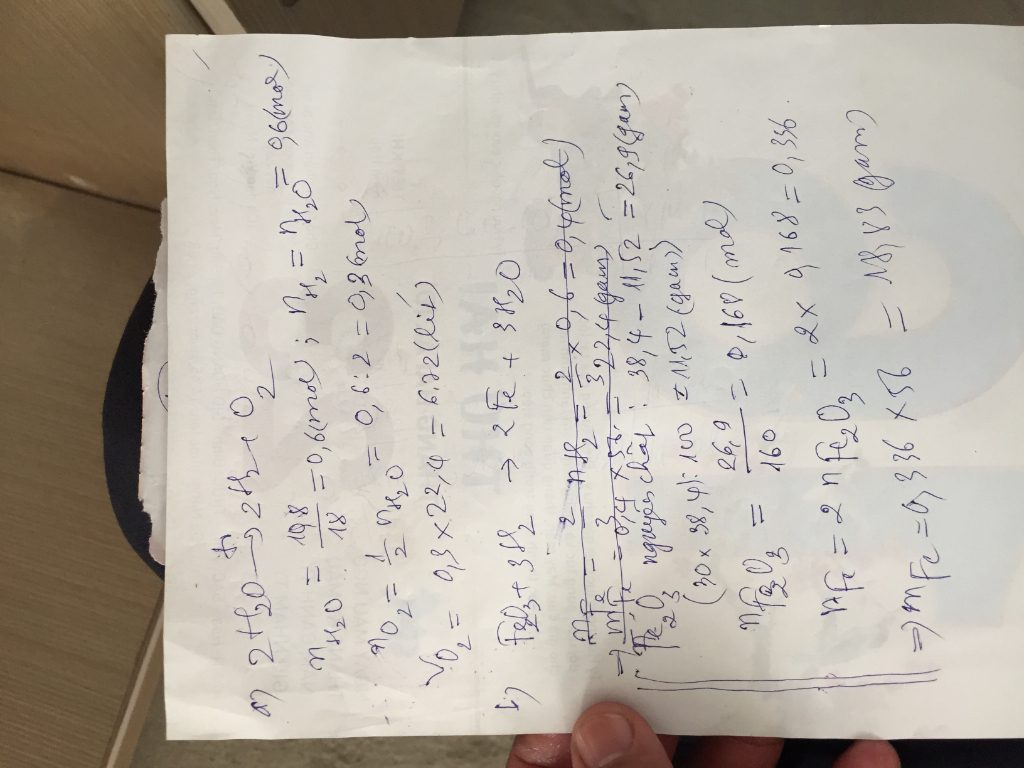 a) 2H2O → đp 2H2 + O2
nH2O = 10,8/18 = 0,6(mol) ; nH2 = nH2O = 0,6(mol)
nO2 = 1/2 nH2O = 0,6 : 2 = 0,3(mol)
VO2 = 0,3 × 22,4 = 6.72(lít)
b) Fe2O3 + 3H2 → 2Fe + 3H2O
nFe = 2/3 nH2 = 2/3 × 0,6 = 0,4(mol)
=> mFe = 0,4 × 56 = 22,4(gam)
Fe2O3 nguyên chất : 38,4 - 11,52 = 26,9(gam)
(30 × 38,4) : 100 = 11,52(gam)
nFe2O3 = 26,9/160 = 0,168(mol)
nFe = 2 nFe2O3 = 2 × 0,168 = 0,336
=> mFe = 0,336 × 56 = 18,83 gam)